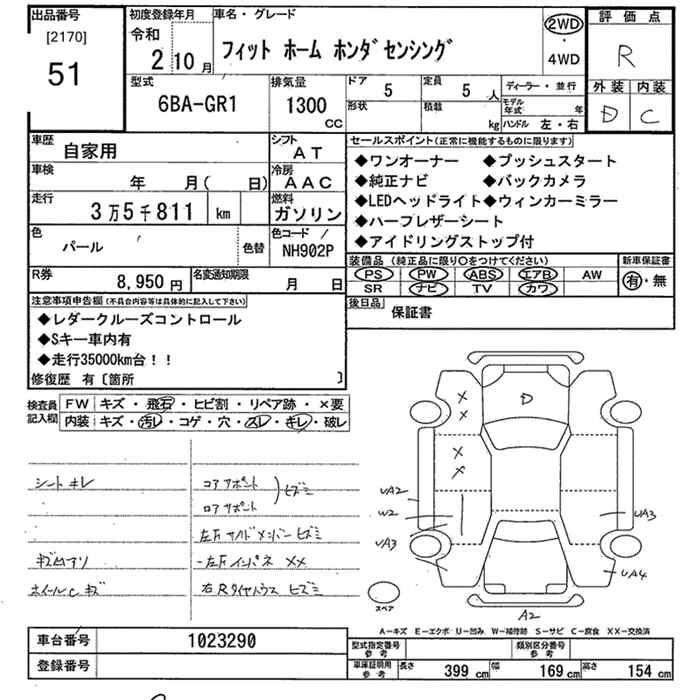 出品番号
[2170]
51
初度登録年月
令和
2 10 月
車名・グレード
フィット ホーム ホンダセンシング
2WD
・
4WD
評価点
R
外装 内装
D C
型式
6BA-GR1
排気量
1300
CC
ドア
5
定員
5 人
形状
積載
kg
ディーラー・並行
モデル年式 年
ハンドル 左・右
車歴
自家用
シフト
AT
車検
年 月( 日)
冷房
AAC
走行
3万5千811 km
燃料
ガソリン
色
パール
色替
色コード /
NH902P
R券
8,950 円
名変通知期限
月 日
セールスポイント(正常に機能するものに限ります)
◆ワンオーナー ◆プッシュスタート
◆純正ナビ ◆バックカメラ
◆LEDヘッドライト◆ウィンカーミラー
◆ハーフレザーシート
◆アイドリングストップ付
装備品 (純正品に限り〇をつけてください)
PS PW ABS エアB AW
SR ナビ TV カワ
新車保証書
有・無
後日品
保証書
注意事項申告欄(不具合内容等は具体的に記入して下さい)
◆レダークルーズコントロール
◆Sキー車内有
◆走行35000km台!!
修復歴 有〔箇所 〕
検査員記入欄
FW キズ・飛石・ヒビ割・リペア跡・×要
内装 キズ・汚レ・コゲ・穴・スレ・キレ・破レ
シートキレ
コアサポート
ロアサポート
ヒズミ
左右サイドメンバー ヒズミ
左右インパネ XX
ホイールC キズ
D
X
X
X
X
UA2
W2
UA3
UA3
UA4
A2
スペア
A-キズ E-エクボ U-凹み W-補修跡 S-サビ C-腐食 XX-交換済
車台番号
1023290
登録番号
型式指定番号
参考
類別区分番号
参考
車庫証明用
参考
長さ 399 cm 幅 169 cm 高さ 154 cm